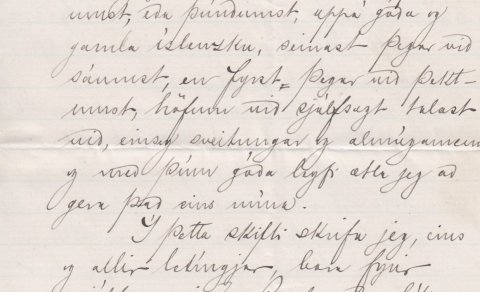 umst, eða þúuðumst, uppá góða og
gamla íslenzku, seinast þegar við
sáumst, en fyrst, þegar við þekkt-
umst, höfum við sjálfsagt talast
við, eins og sveitungar og almúgamenn
og með þínu góða leyfi ætla jeg að
gera það eins núna.
Í þetta skifti skrifa jeg, eins
og allir letingjar, bara fyrir